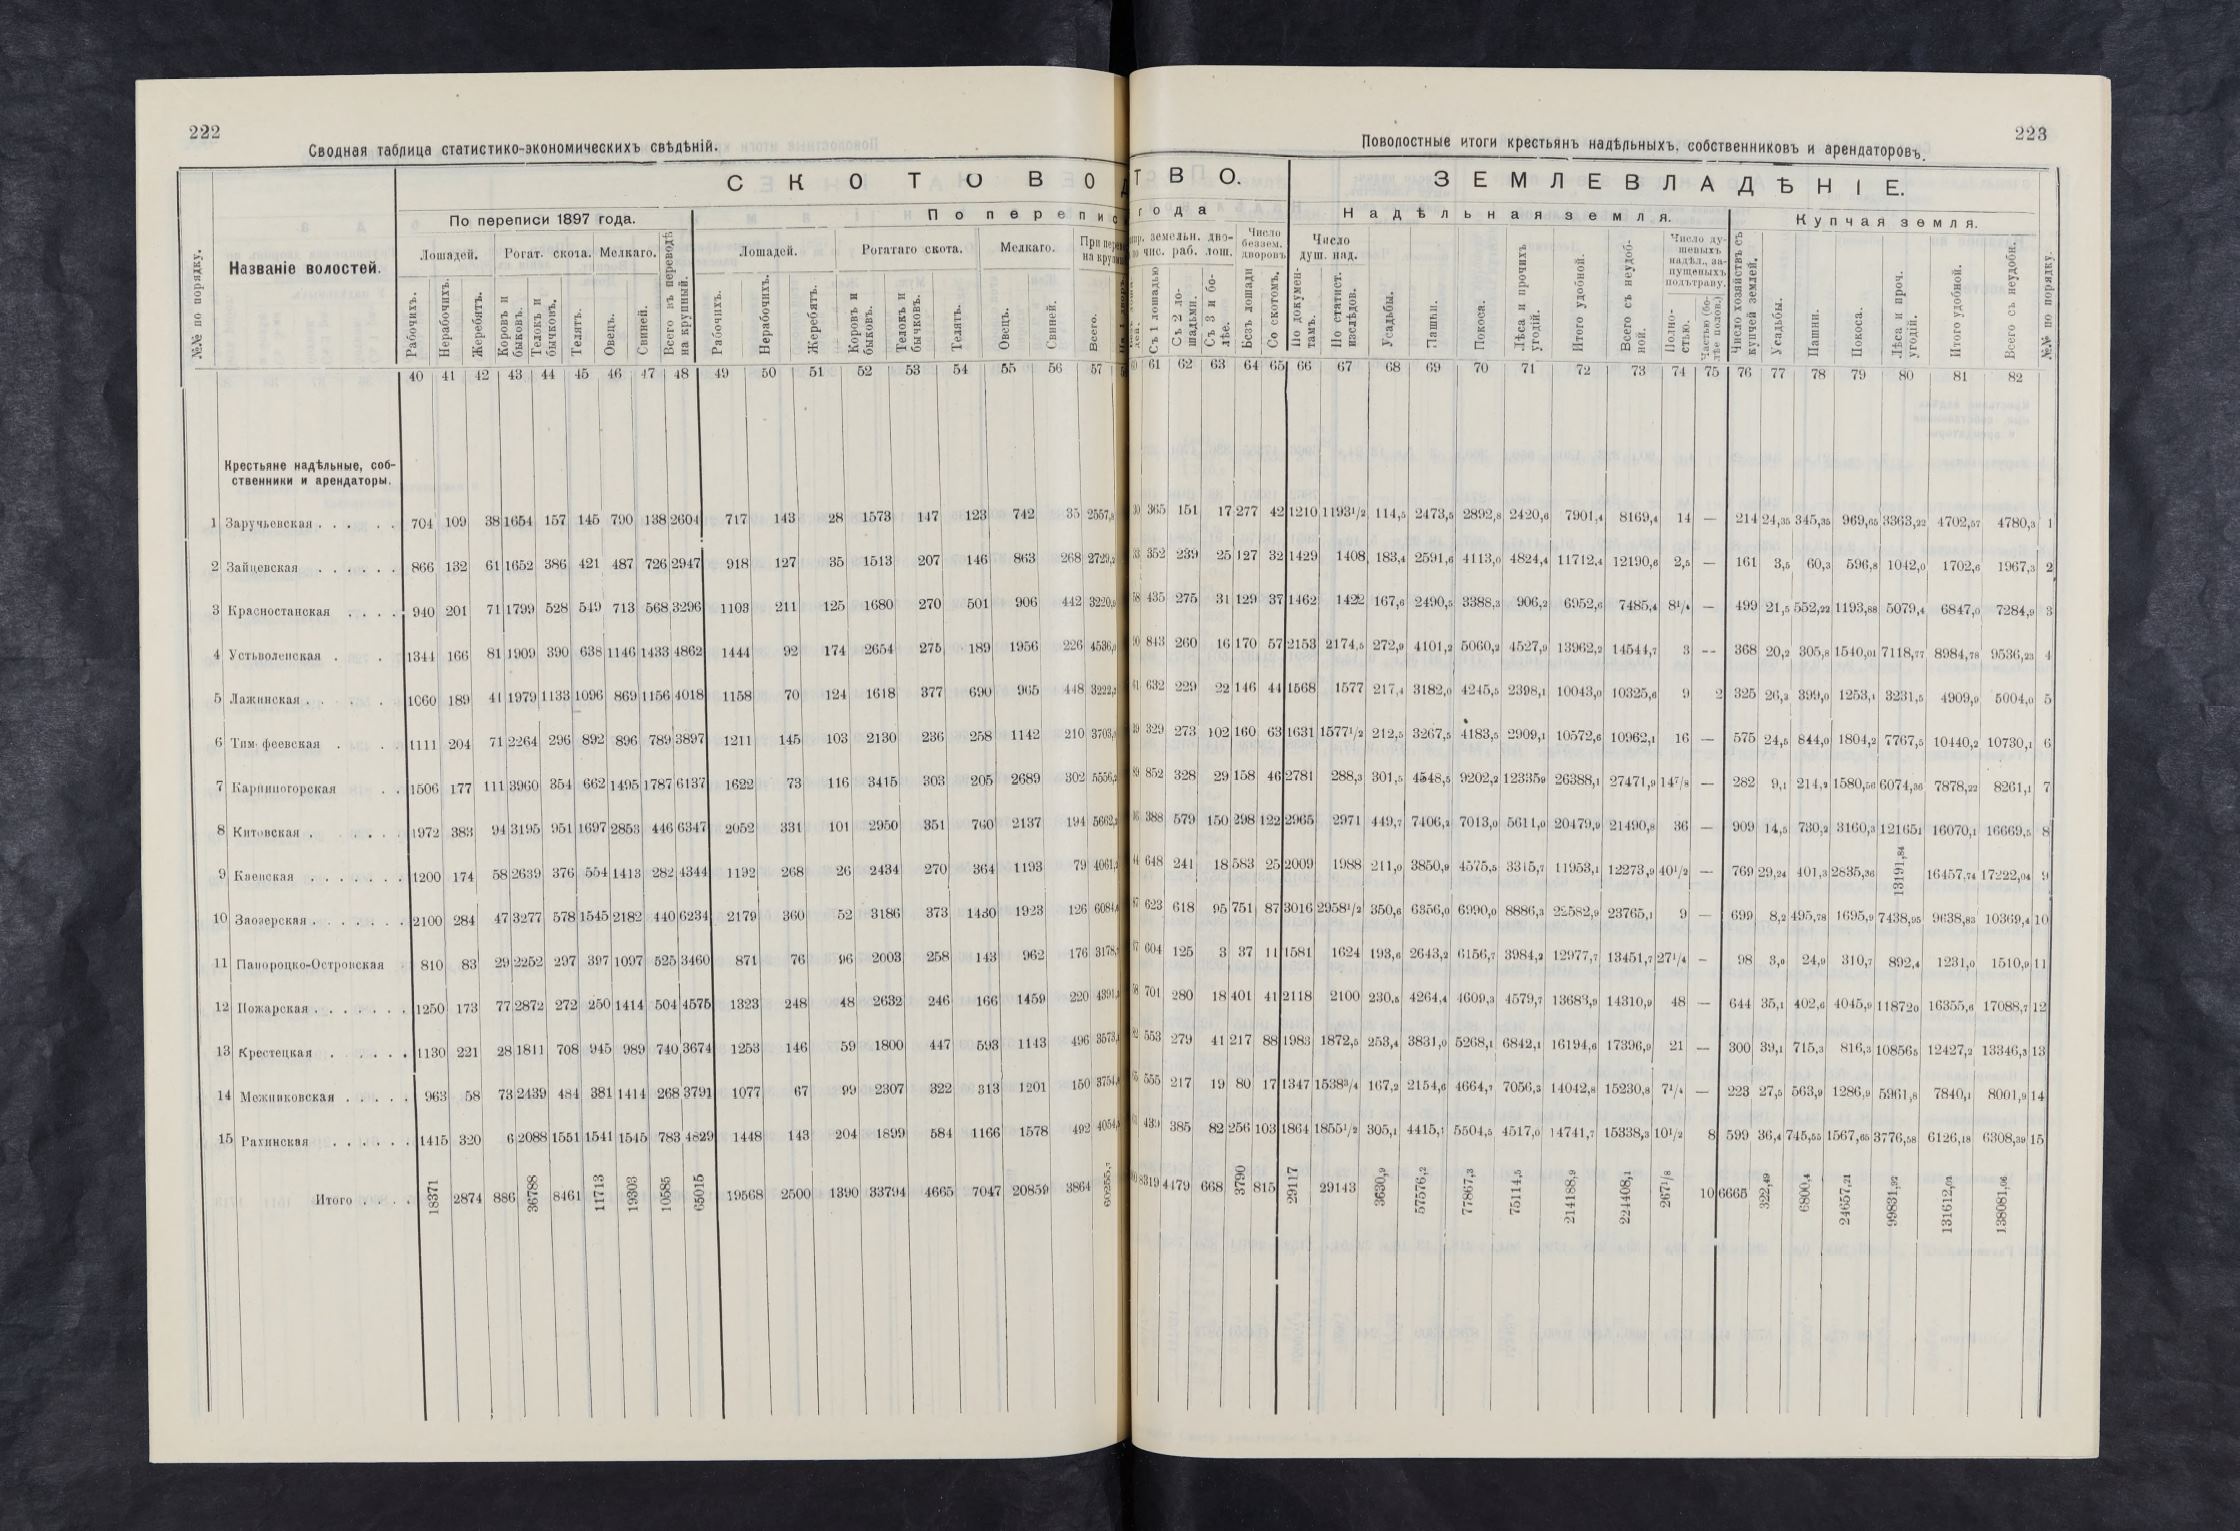 222
Сводная таблица статистико-экономическихъ свѣдѣній.
№№ по порядку.
Названіе волостей.
СКОТОВОД
По переписи 1897 года.
По перепис
Лошадей. Рогат. скота. Мелкаго. Всего въ переводѣ на крупный.
Лошадей. Рогатаго скота. Мелкаго.
Рабочихъ. Нерабочихъ. Жеребятъ. Коровъ и быковъ. Телокъ и бычковъ. Телятъ. Овецъ. Свиней.
Рабочихъ. Нерабочихъ. Жеребятъ. Коровъ и быковъ. Телокъ и бычковъ. Телятъ. Овецъ. Свиней. Всего.
40 41 42 43 44 45 46 47 48 49 50 51 52 53 54 55 56 57
Крестьяне надѣльные, соб-
ственники и арендаторы.
1 Заручьевская 704 109 38 1654 157 145 790 138 2604 717 143 28 1573 147 123 742 35
2 Зайцевская 866 132 61 1652 386 421 487 726 2947 918 127 35 1513 207 146 863 268
3 Красностанская 940 201 71 1799 528 549 713 568 3296 1103 211 125 1680 270 501 906 442
4 Устьволенская 1344 166 81 1909 390 638 1146 1433 4862 1444 92 174 2654 275 189 1956 226
5 Лажинская 1060 189 41 1979 1133 1096 869 1156 4018 1158 70 124 1618 377 690 965 448
6 Тим феевская 1111 204 71 2264 296 892 896 789 3897 1211 145 103 2130 236 258 1142 210
7 Карпиногорская 1506 177 111 3960 354 662 1495 1787 6137 1622 73 116 3415 303 205 2689 302
8 Китовская 1972 383 94 3195 951 1697 2853 446 6347 2052 331 101 2950 351 760 2137 194
9 Каевская 1200 174 58 2639 376 554 1413 282 4344 1192 268 26 2434 270 364 1193 79
10 Заозерская 2100 284 47 3277 578 1545 2182 440 6234 2179 360 52 3186 373 1430 1923 126
11 Папороцко-Островская 810 83 29 2252 297 397 1097 525 3460 871 76 96 2003 258 143 962 176
12 Пожарская 1250 173 77 2872 272 250 1414 504 4575 1323 248 48 2632 246 166 1459 220
13 Крестецкая 1130 221 28 1811 708 945 989 740 3674 1253 146 59 1800 447 593 1143 496
14 Межниковская 963 58 73 2439 484 381 1414 268 3791 1077 67 99 2307 322 313 1201 150
15 Рахинская 1415 320 6 2088 1551 1541 1545 783 4829 1448 143 204 1899 584 1166 1578 492
Итого 18371 2874 886 36788 8461 11713 19303 10585 65015 19568 2500 1390 33794 4665 7047 20859 3864
223
Поволостные итоги крестьянъ надѣльныхъ, собственниковъ и арендаторовъ.
ТВО.
ЗЕМЛЕВЛАДѢНІЕ.
года
Надѣльная земля.
Купчая земля.
земельн. дво- чис. раб. лош.
Число беззем. дворовъ
Число душ. над.
Число ду- шевыхъ надѣл., за- пущеныхъ подътраву.
Съ 1 лошадью Съ 2 ло- шадьми. Съ 3 и бо- лѣе. Безъ лошади Со скотомъ. По докумен- тамъ. По статист. изслѣдов. Усадьбы. Пашни. Покоса. Лѣса и прочихъ угодій. Итого удобной. Всего съ неудоб- ной. Полно- стью. Частью (бо- лѣе полов.)
Число хозяйствъ съ купчей землей. Усадьбы. Пашни. Покоса. Лѣса и проч. угодій. Итого удобной. Всего съ неудобн. №№ по порядку.
61 62 63 64 65 66 67 68 69 70 71 72 73 74 75 76 77 78 79 80 81 82
365 151 17 277 42 1210 1193½ 114,5 2473,5 2892,8 2420,6 7901,4 8169,4 14 — 214 24,35 345,35 969,65 3363,22 4702,57 4780,3 1
352 239 25 127 32 1429 1408 183,4 2591,6 4113,0 4824,4 11712,4 12190,6 2,5 — 161 3,5 60,3 596,8 1042,0 1702,6 1967,3 2
435 275 31 129 37 1462 1422 167,6 2490,5 3388,3 906,2 6952,6 7485,4 8¼ — 499 21,5 552,22 1193,88 5079,4 6847,0 7284,9 3
843 260 16 170 57 2153 2174,5 272,9 4101,2 5060,2 4527,9 13962,2 14544,7 3 -- 368 20,2 305,8 1540,01 7118,77 8984,78 9536,23 4
632 229 22 146 44 1568 1577 217,4 3182,0 4245,5 2398,1 10043,0 10325,6 9 2 325 26,3 399,0 1253,1 3231,5 4909,9 5004,0 5
329 273 102 160 63 1631 1577½ 212,5 3267,5 4183,5 2909,1 10572,6 10962,1 16 — 575 24,5 844,0 1804,2 7767,5 10440,2 10730,1 6
852 328 29 158 46 2781 288,3 301,5 4548,5 9202,2 123359 26388,1 27471,9 14⅞ — 282 9,1 214,2 1580,56 6074,36 7878,22 8261,1 7
388 579 150 298 122 2965 2971 449,7 7406,2 7013,0 5611,0 20479,9 21490,8 36 — 909 14,5 730,2 3160,3 121651 16070,1 16669,5 8
648 241 18 583 25 2009 1988 211,0 3850,9 4575,5 3315,7 11953,1 12273,9 40½ — 769 29,24 401,3 2835,36 13191,84 16457,74 17222,04 9
623 618 95 751 87 3016 2958½ 350,6 6356,0 6990,0 8886,3 22582,9 23765,1 9 — 699 8,2 495,78 1695,9 7438,95 9638,83 10369,4 10
604 125 3 37 11 1581 1624 193,6 2643,2 6156,7 3984,2 12977,7 13451,7 27¼ – 98 3,0 24,9 310,7 892,4 1231,0 1510,9 11
701 280 18 401 41 2118 2100 230,5 4264,4 4609,3 4579,7 13683,9 14310,9 48 — 644 35,1 402,6 4045,9 118720 16355,6 17088,7 12
553 279 41 217 88 1983 1872,5 253,4 3831,0 5268,1 6842,1 16194,6 17396,9 21 — 300 39,1 715,3 816,3 108565 12427,2 13346,3 13
555 217 19 80 17 1347 1538¾ 167,2 2154,6 4664,7 7056,3 14042,8 15230,8 7¼ — 223 27,5 563,9 1286,9 5961,8 7840,1 8001,9 14
439 385 82 256 103 1864 1855½ 305,1 4415,1 5504,5 4517,0 14741,7 15338,3 10½ 8 599 36,4 745,55 1567,65 3776,58 6126,18 6308,39 15
8319 4479 668 3790 815 29117 29143 3630,9 57576,2 77867,3 75114,5 214188,9 224408,1 267⅛ 10 6665 322,49 6800,4 24657,21 99831,97 131612,01 138081,06